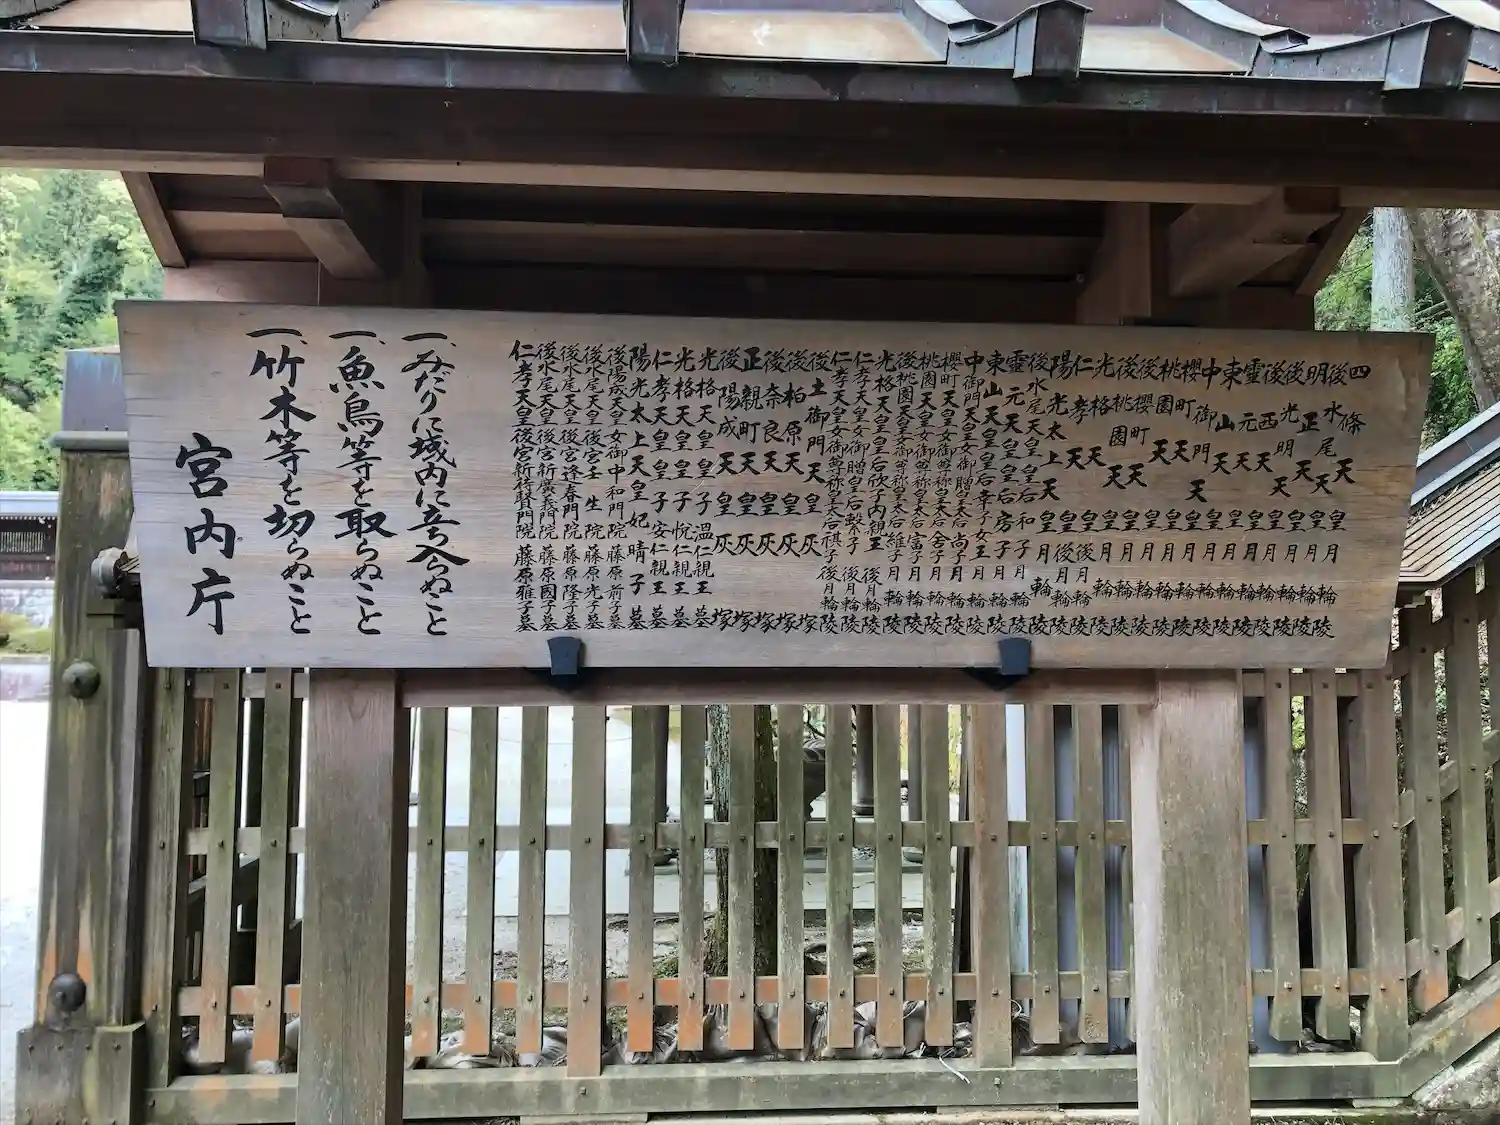 四條天皇 月輪陵
後水尾天皇 月輪陵
明正天皇 月輪陵
後光明天皇 月輪陵
後西天皇 月輪陵
靈元天皇 月輪陵
東山天皇 月輪陵
中御門天皇 月輪陵
櫻町天皇 月輪陵
桃園天皇 月輪陵
後櫻町天皇 月輪陵
後桃園天皇 月輪陵
光格天皇 後月輪陵
仁孝天皇 後月輪陵
陽光太上天皇 月輪陵
後水尾天皇皇后和子 月輪陵
靈元天皇皇后房子 月輪陵
東山天皇皇后幸子女王 月輪陵
中御門天皇女御贈皇太后尚子 月輪陵
櫻町天皇女御尊称皇太后舍子 月輪陵
桃園天皇女御尊称皇太后富子 月輪陵
後桃園天皇女御尊称皇太后維子 月輪陵
光格天皇皇后欣子内親王 後月輪陵
仁孝天皇女御贈皇后繋子 後月輪陵
仁孝天皇女御尊称皇太后祺子 後月輪陵
後土御門天皇 灰塚
後柏原天皇 灰塚
後奈良天皇 灰塚
正親町天皇 灰塚
後陽成天皇 灰塚
光格天皇皇子温仁親王 墓
光格天皇皇子悦仁親王 墓
仁孝天皇皇子安仁親王 墓
陽光太上天皇妃晴子 墓
後陽成天皇女御中和門院藤原前子墓
後水尾天皇後宮壬生院藤原光子墓
後水尾天皇後宮逢春門院藤原隆子墓
後水尾天皇後宮新廣義門院藤原國子墓
仁孝天皇後宮新待賢門院藤原雅子墓
一、みだりに域内に立ち入らぬこと
一、魚鳥等を取らぬこと
一、竹木等を切らぬこと
宮内庁